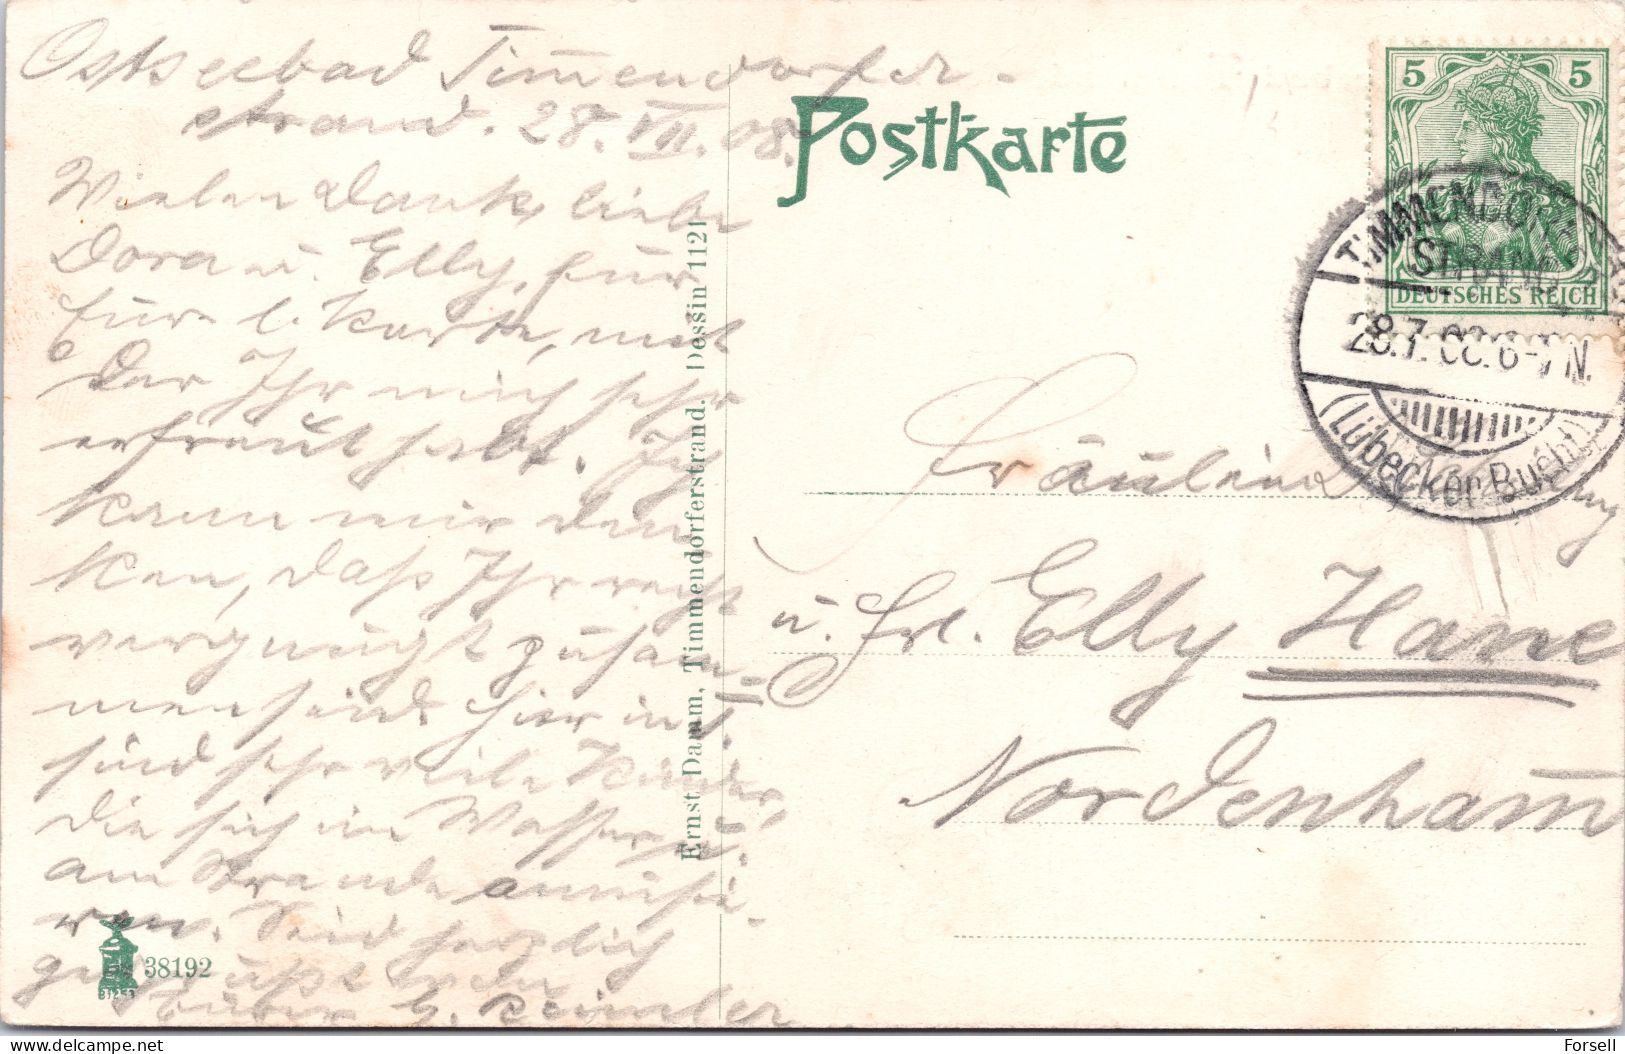 Ostseebad Timmendorfer-
strand. 28. VII. 08.
Vielen Dank, liebe
Dora u. Elly, für
für l. Karte, mit
der Ihr mich sehr
erfreut habt. Ich
kann mir den
ken, daß Ihr recht
vergnügt zusam-
men seid. Hier in T.
sind sehr viele Kinder,
die sich im Wasser u.
am Strande amüsie-
ren. Seid herzlich
gegrüßt
38192
Ernst Damm, Timmendorferstrand. Dessin 1121
Postkarte
5 5
DEUTSCHES REICH
TIMMENDORF
STRAND
28.7.08. 6-7 N.
(Lübecker Bucht)
Fräulein
u. Frl. Elly Hane
Nordenham
Forsell
delcampe.net